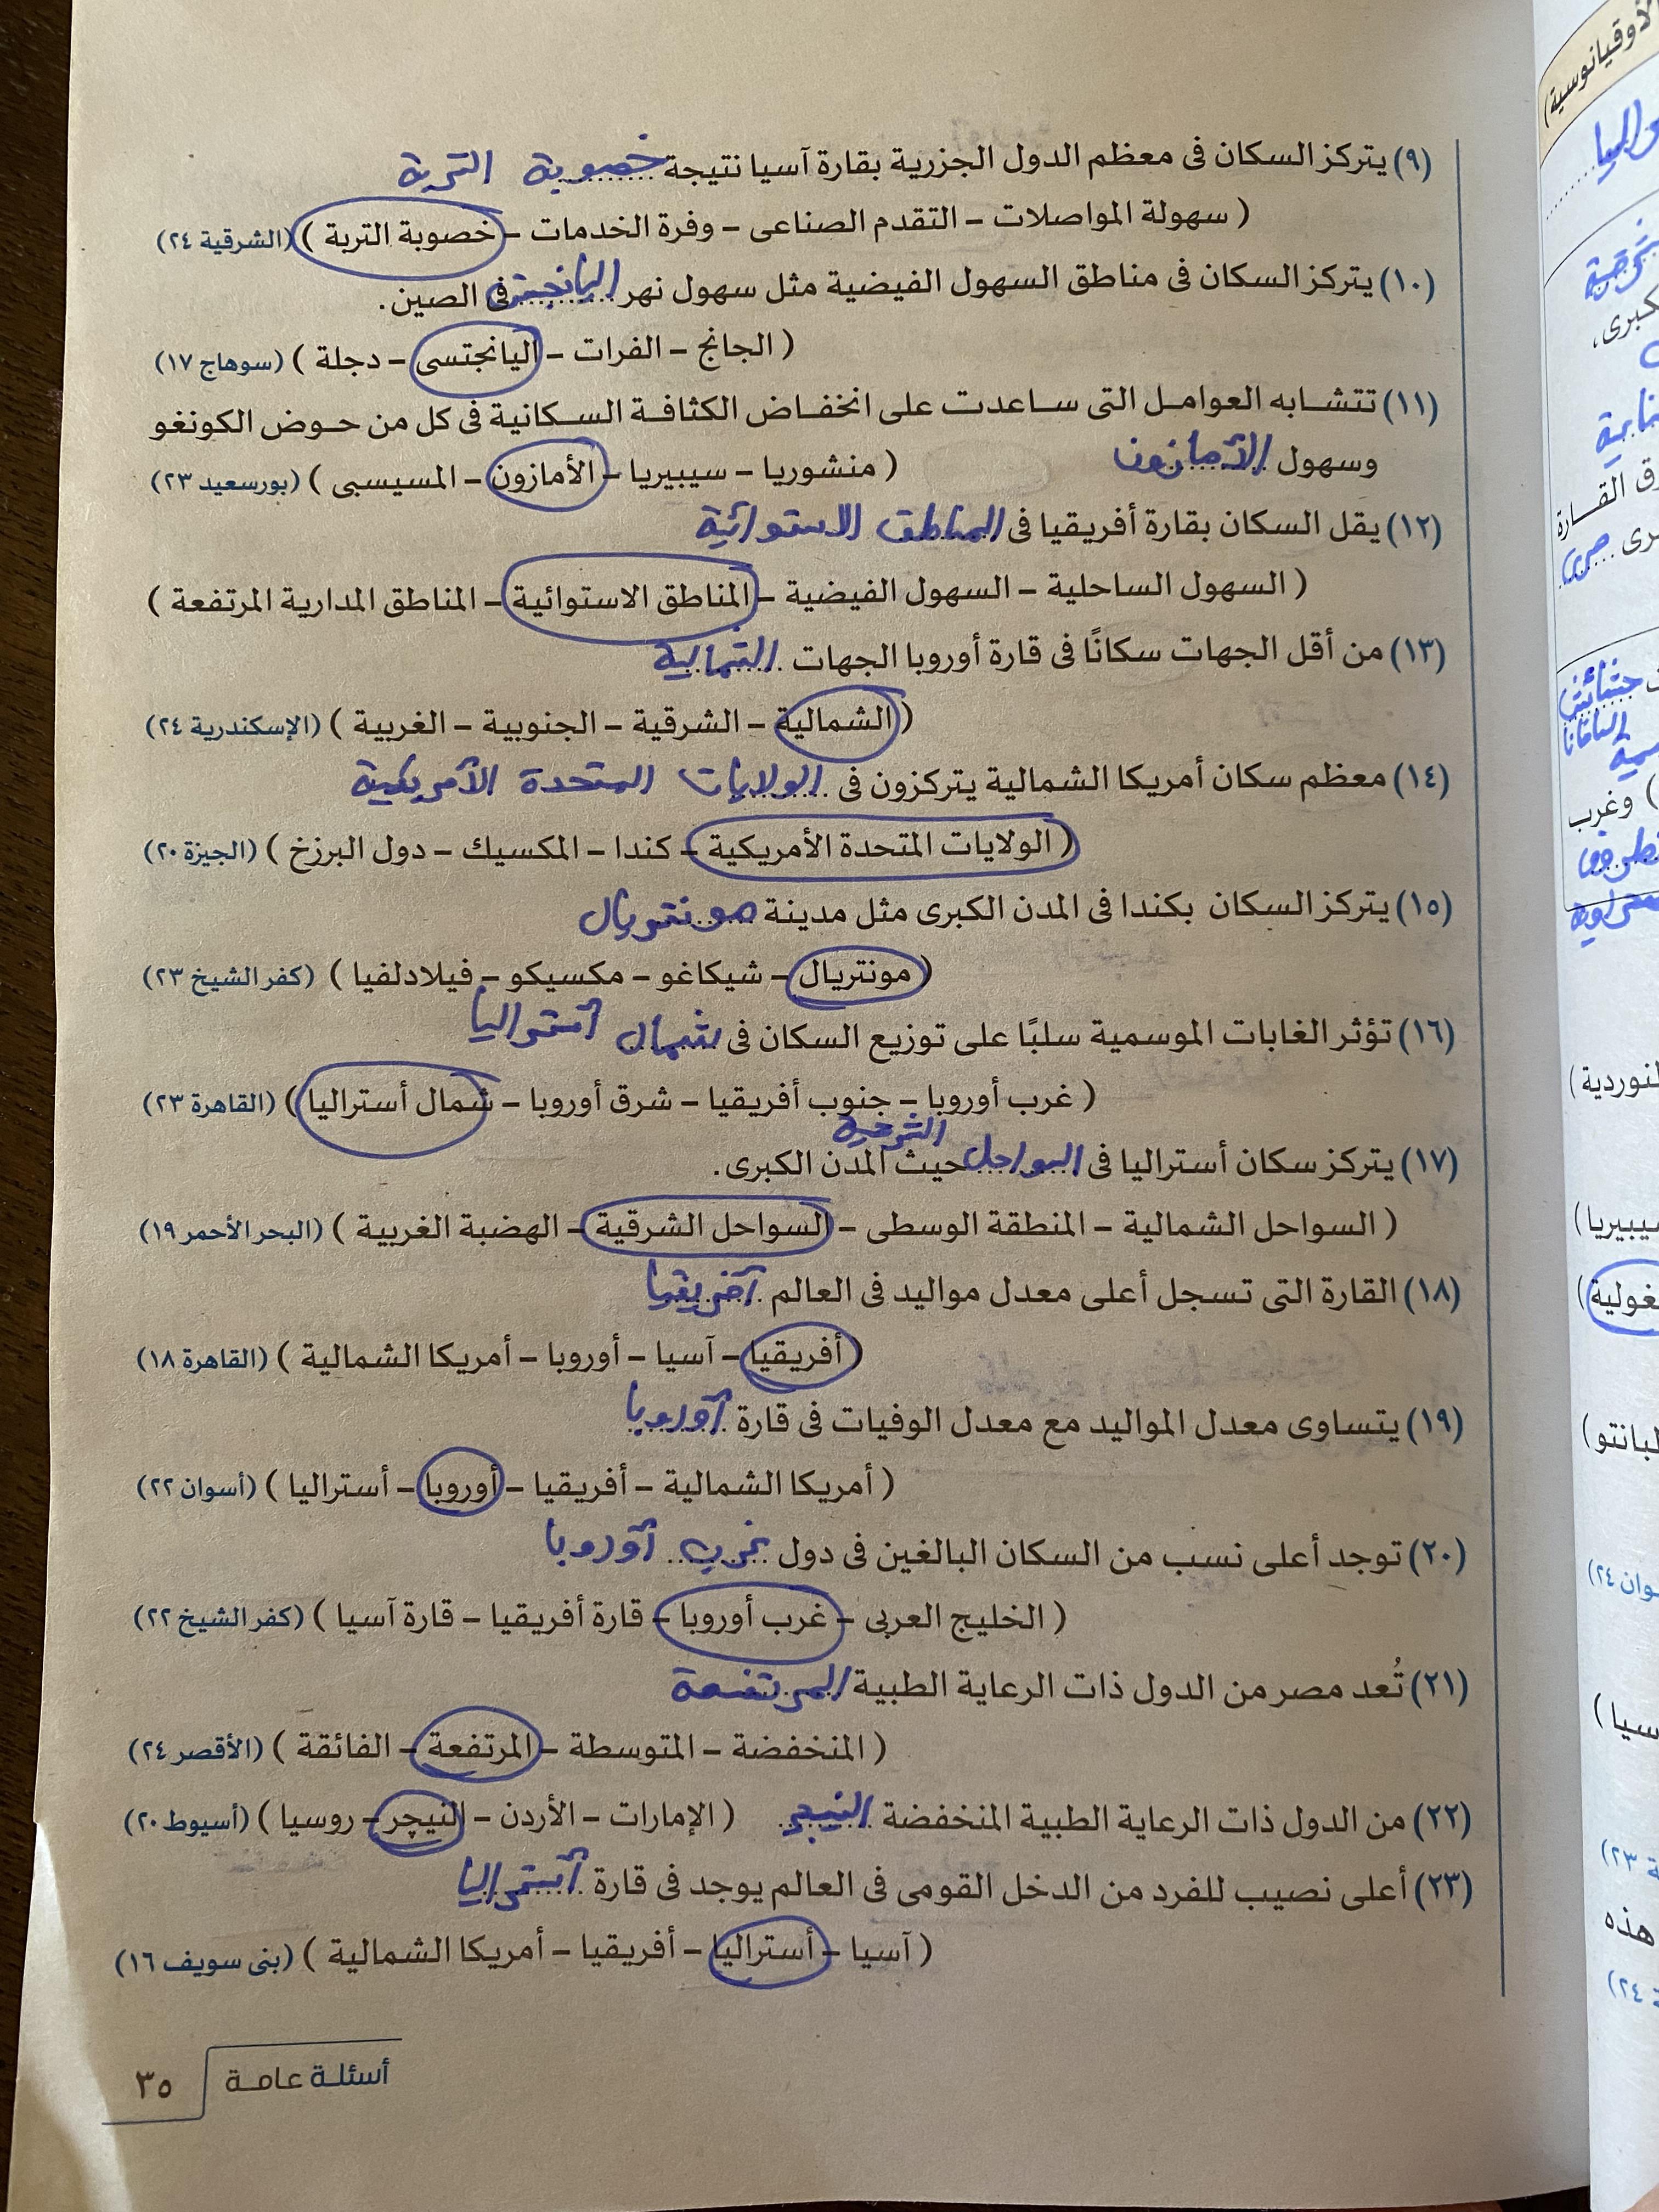 (٩) يتركز السكان فى معظم الدول الجزرية بقارة آسيا نتيجة خصوبة التربة
( سهولة المواصلات – التقدم الصناعى – وفرة الخدمات – خصوبة التربة ) (الشرقية ٢٤)
(١٠) يتركز السكان فى مناطق السهول الفيضية مثل سهول نهر اليانجتسى فى الصين.
( الجانج – الفرات – اليانجتسى – دجلة ) (سوهاج ١٧)
(١١) تتشابه العوامل التى ساعدت على انخفاض الكثافة السكانية فى كل من حوض الكونغو
وسهول الأمازون ( منشوريا – سيبيريا – الأمازون – المسيسبى ) (بورسعيد ٢٣)
(١٢) يقل السكان بقارة أفريقيا فى المناطق الاستوائية
( السهول الساحلية – السهول الفيضية – المناطق الاستوائية – المناطق المدارية المرتفعة )
(١٣) من أقل الجهات سكانًا فى قارة أوروبا الجهات الشمالية
( الشمالية – الشرقية – الجنوبية – الغربية ) (الإسكندرية ٢٤)
(١٤) معظم سكان أمريكا الشمالية يتركزون فى الولايات المتحدة الأمريكية
( الولايات المتحدة الأمريكية – كندا – المكسيك – دول البرزخ ) (الجيزة ٢٠)
(١٥) يتركز السكان بكندا فى المدن الكبرى مثل مدينة مونتريال
( مونتريال – شيكاغو – مكسيكو – فيلادلفيا ) (كفر الشيخ ٢٣)
(١٦) تؤثر الغابات الموسمية سلبًا على توزيع السكان فى شمال أستراليا
( غرب أوروبا – جنوب أفريقيا – شرق أوروبا – شمال أستراليا ) (القاهرة ٢٣)
(١٧) يتركز سكان أستراليا فى السواحل الشرقية حيث المدن الكبرى.
( السواحل الشمالية – المنطقة الوسطى – السواحل الشرقية – الهضبة الغربية ) (البحر الأحمر ١٩)
(١٨) القارة التى تسجل أعلى معدل مواليد فى العالم أفريقيا
( أفريقيا – آسيا – أوروبا – أمريكا الشمالية ) (القاهرة ١٨)
(١٩) يتساوى معدل المواليد مع معدل الوفيات فى قارة أوروبا
( أمريكا الشمالية – أفريقيا – أوروبا – أستراليا ) (أسوان ٢٢)
(٢٠) توجد أعلى نسب من السكان البالغين فى دول غرب أوروبا
( الخليج العربى – غرب أوروبا – قارة أفريقيا – قارة آسيا ) (كفر الشيخ ٢٢)
(٢١) تُعد مصر من الدول ذات الرعاية الطبية المرتفعة
( المنخفضة – المتوسطة – المرتفعة – الفائقة ) (الأقصر ٢٤)
(٢٢) من الدول ذات الرعاية الطبية المنخفضة النيجر ( الإمارات – الأردن – النيچر – روسيا ) (أسيوط ٢٠)
(٢٣) أعلى نصيب للفرد من الدخل القومى فى العالم يوجد فى قارة أستراليا
( آسيا – أستراليا – أفريقيا – أمريكا الشمالية ) (بنى سويف ١٦)
أسئلة عامة ٣٥